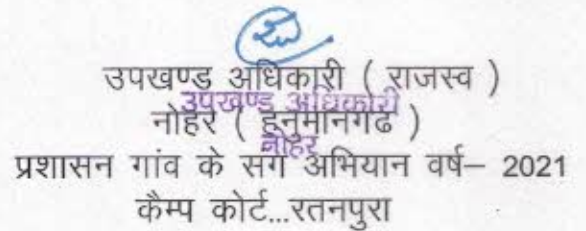 उपखण्ड अधिकारी ( राजस्व )
उपखण्ड अधिकारी
नोहर ( हनुमानगढ )
नोहर
प्रशासन गांव के संग अभियान वर्ष– 2021
कैम्प कोर्ट...रतनपुरा